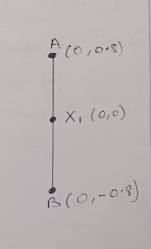 A (0, 0.8)
X₁ (0,0)
B (0, -0.8)